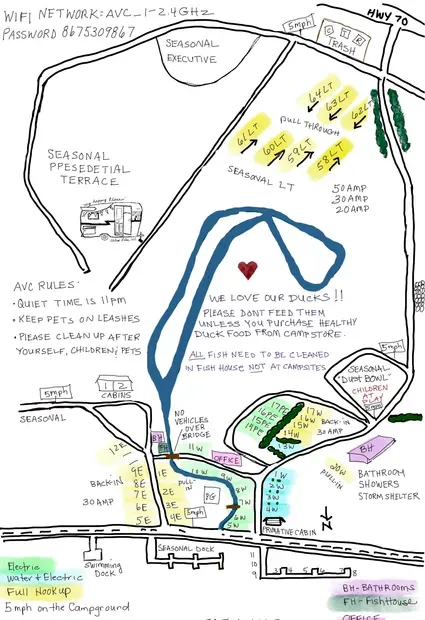 WIFI NETWORK: AVC_1-2.4GHz
PASSWORD 8675309867
HWY 70
5mph
C T R
TRASH
SEASONAL
EXECUTIVE
64LT
63LT
62LT
PULL THROUGH
61LT
60LT
59LT
58LT
SEASONAL LT
SEASONAL
PPESEDETIAL
TERRACE
50 AMP
30 AMP
20 AMP
AVC RULES:
• QUIET TIME IS 11pm
• KEEP PETS ON LEASHES
• PLEASE CLEAN UP AFTER
YOURSELF, CHILDREN, PETS
WE LOVE OUR DUCKS!!
PLEASE DONT FEED THEM
UNLESS YOU PURCHASE HEALTHY
DUCK FOOD FROM CAMPSTORE.
ALL FISH NEED TO BE CLEANED
IN FISH HOUSE NOT AT CAMPSITES
5mph
SEASONAL
"DUST BOWL"
CHILDREN
AT
PLAY
5mph
1 2
CABINS
SEASONAL
NO
VEHICLES
OVER
BRIDGE
17PE
16PE
15PE
14PE
17W
16W
15W
14W
13W
BACK-IN
30 AMP
BH
FH
11W
OFFICE
BH
20W
PULL IN
BATHROOM
SHOWERS
STORM SHELTER
12E
BACK-IN
30 AMP
9E
8E
7E
6E
5E
1E
2E
3E
4E
PULL-IN
10W
9W
8W
7W
6W
5W
PG
5mph
1W
2W
3W
4W
PRIMATIVE CABIN
N
SEASONAL DOCK
SWIMMING
DOCK
11
10
9
8
Electric
Water + Electric
Full Hookup
5mph on the Campground
BH-BATHROOMS
FH-FISHHOUSE
OFFICE